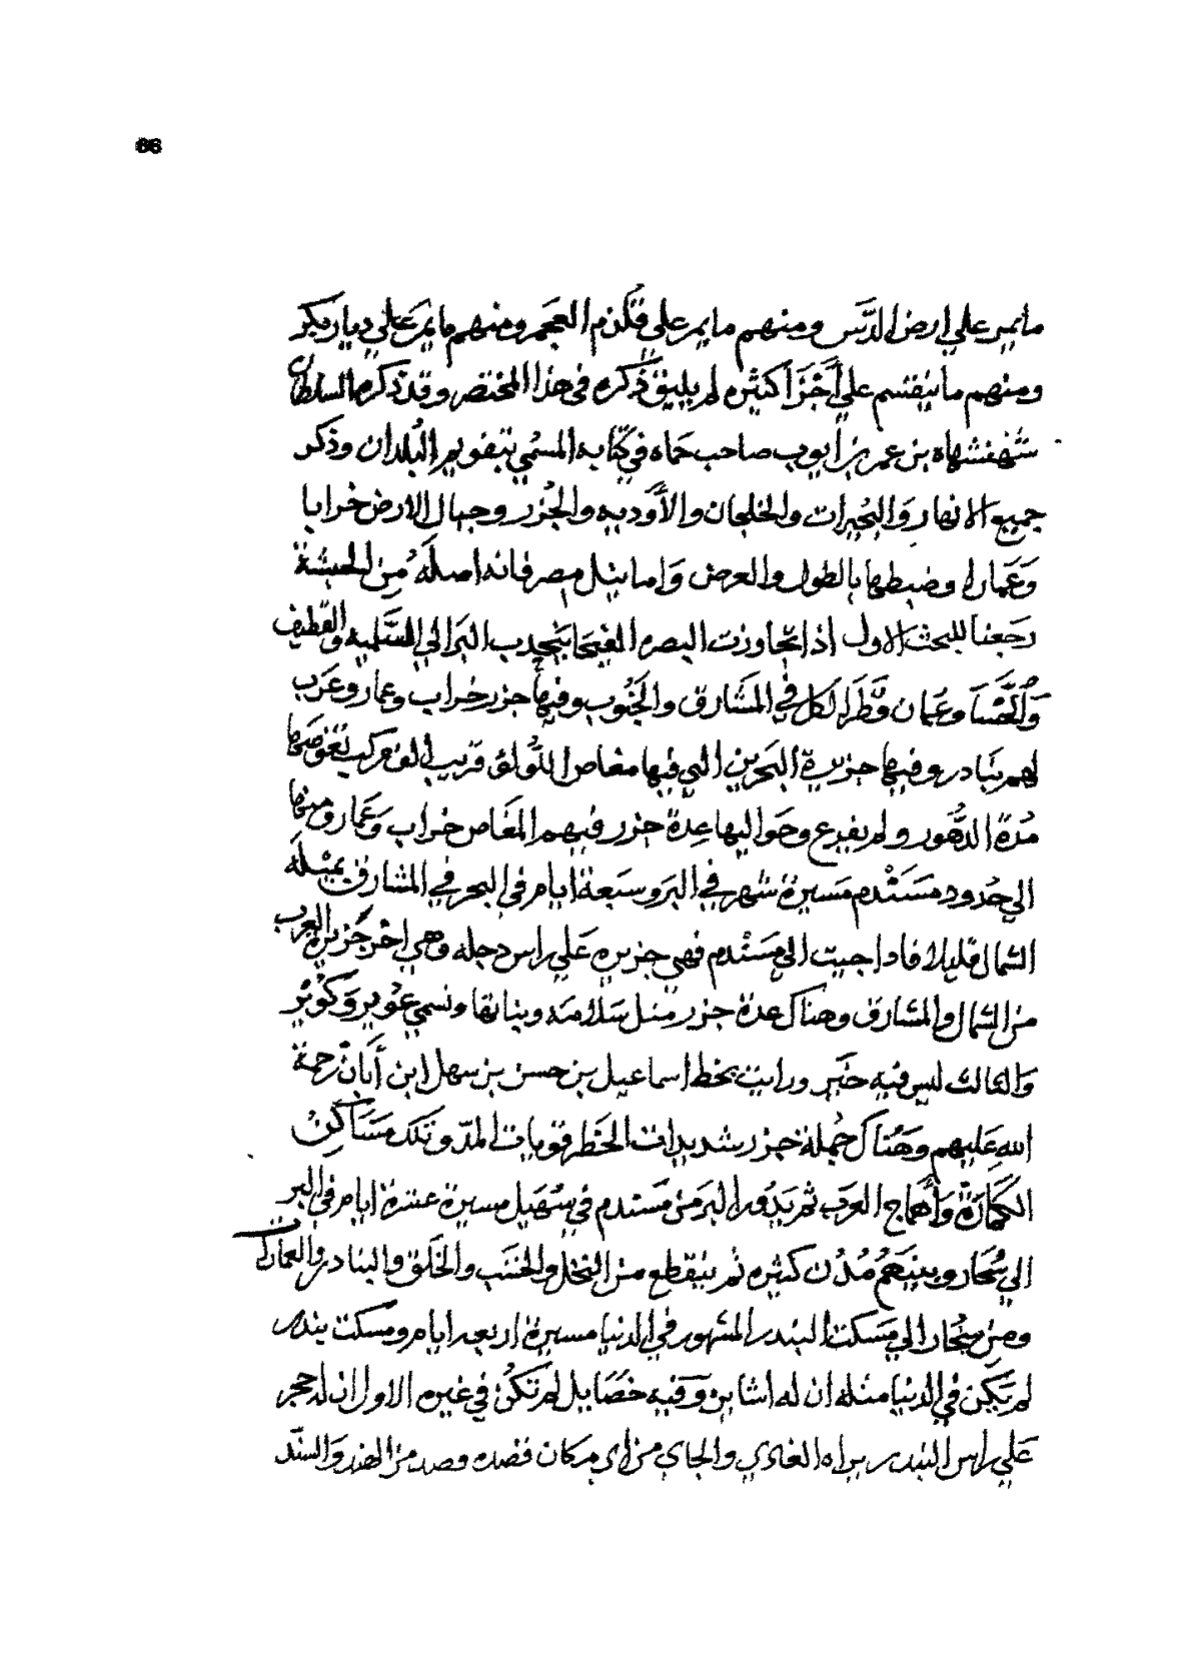 66
ما يمر علي ارض الدَّبَس ومنهم ما يمر علي قلزم العجم ومنهم ما يمر علي ديار بكر
ومنهم ما ينقسم علي أجزا كثيره لم يليق ذكره في هذا المختصر وقد ذكرها السلطان
شهنشهاه بن عمر بن أيوب صاحب حماه في كتابه المسمي بتقويم البلدان وذكر
جميع الانهار والبحيرات والخلجان والأوديه والجزر وجبال الارض خرابا
وعمارا وضبطها بالطول والعرض واما نيل مصر فانه اصله من الحبشة
رجعنا للبحث الاول اذا تجاوزت البصره الفيحا ينجدب البر الي السلميه والقطيف
والحسا وعمان وقطر الكل في المشارق والجنوب وفيها جزر خراب وعمار وعرب
لهم بنادر وفيها جزيرة البحرين التي فيها مغاص اللولؤ قريب الف مركب تغوصها
مدة الدهور ولم يفرع وحواليها عدة جزر فيهم المغاص خراب وعمار ومنها
الي حدود مسندم مسيرة شهر في البر وسبعة ايام في البحر في المشارق يميله
الشمال قليلا فادا جيت الي مسندم فهي جزيره علي راس دجله وهي اخر جزيرة العرب
من الشمال والمشارق وهناك عدة جزر مثل سلامه وبناتها وتسمي عوير وكوير
والثالث ليس فيه خير ورايت بخط اسماعيل بن حسن بن سهل ابن أبان رحمة
الله عليهم وهناك جملة جزر شديدات الخطر قويات المد وتلك مساكن
الكمازة وأهماج العرب ثم يدور البر من مسندم في سهيل مسيرة عشرة ايام في البر
الي سحار وبينهم مدن كثيره ثم ينقطع من النخل والخشب والخلق والبنادر والعمارات
ومن سحار الي مسكت البندر المشهور في الدنيا مسيرة اربعه ايام ومسكت بندر
لم يكن في الدنيا مثله ان له اشاير وفيه خصايل لم تكن في غيره الاول ان له حجر
علي راس البندر يراه الغادي والجاي من اي مكان قصده وصد من الهند والسند